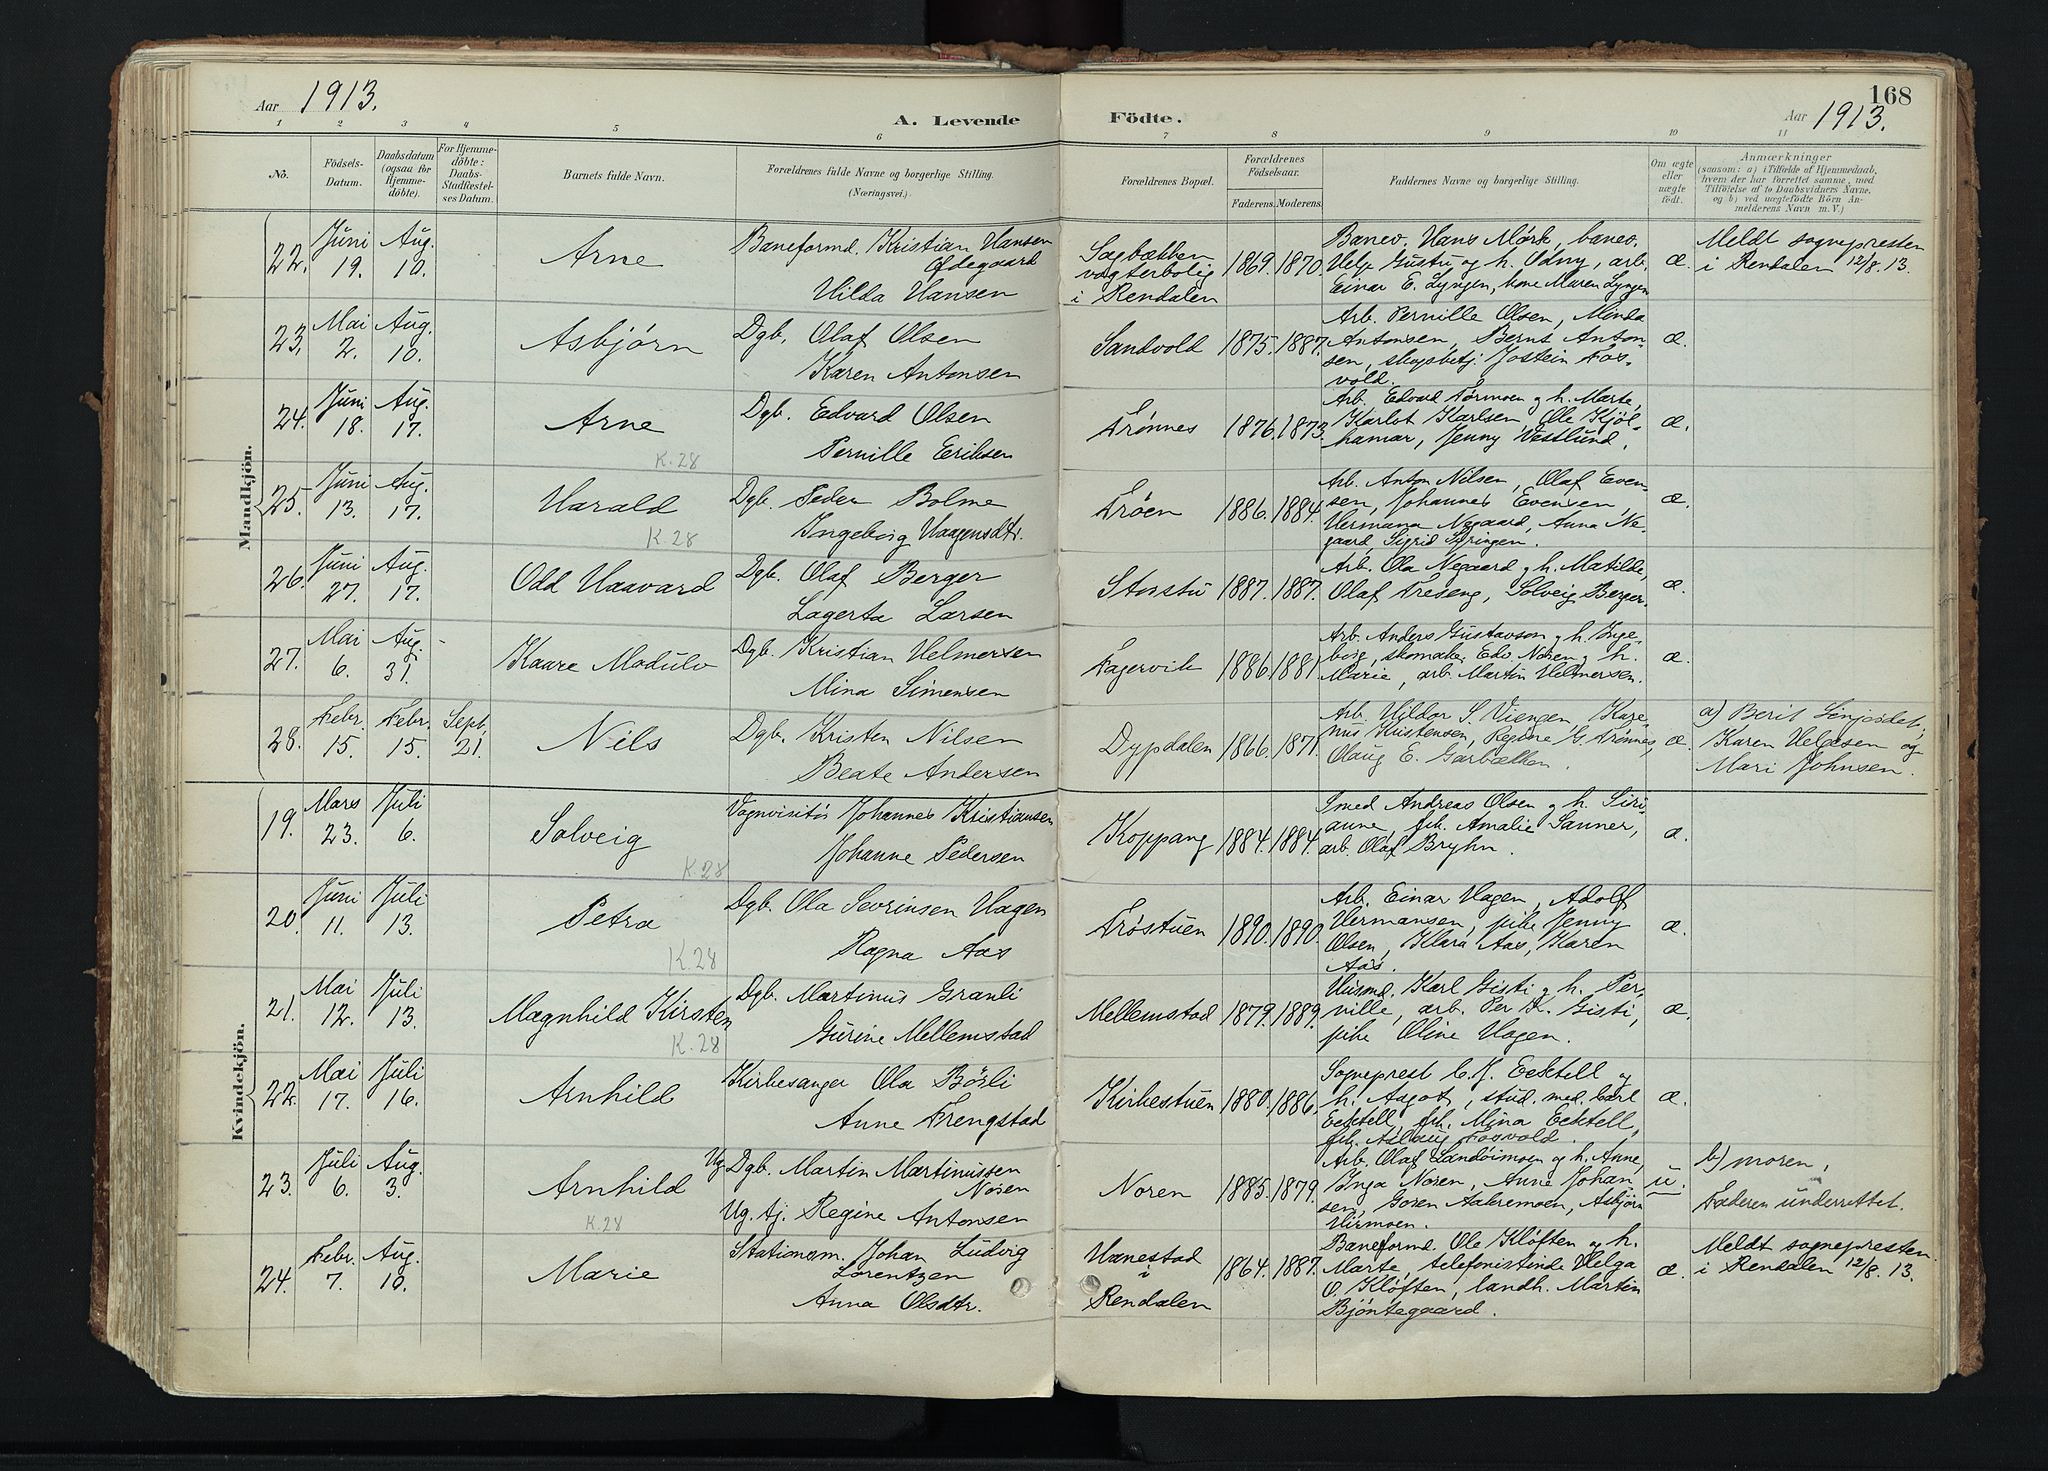 168
Aar 1913.
A. Levende Födte.
Aar 1913.
1 2 3 4 5 6 7 8 9 10 11
No. Födsels-Datum. Daabsdatum (ogsaa for Hjemme-döbte). For Hjemme-döbte: Daabs-Stadfæstel-ses Datum. Barnets fulde Navn. Forældrenes fulde Navne og borgerlige Stilling. (Næringsvei.) Forældrenes Bopæl. Forældrenes Födselsaar. Faderens. Moderens. Faddernes Navne og borgerlige Stilling. Om ægte eller uægte födt. Anmærkninger
(saasom: a) i Tilfælde af Hjemmedaab,
hvem der har forrettet samme, med
Tilföielse af to Daabsvidners Navne,
og b) ved uægtefödte Börn An-
melderens Navn m. V.)
Mandkjön.
22. Juni 19. Aug. 10. Arne
Baneformd. Kristian Hansen
Ødegaard
Hilda Hansen
Sagbækken
vogterbolig
i Rendalen
1869. 1870.
Banev. Hans Mörk, banev.
Help Gustu og h. Odny, arb.
Einar E. Lyngen, kone Maren Lyngen
æ.
Meldt sognepresten
i Rendalen 12/8. 13.
23. Mai 2. Aug. 10. Asbjørn
Dgb. Olaf Olsen
Karen Antonsen
Sandvold 1875. 1887.
Arb. Pernille Olsen, Minda
Antonsen, Bernt Anton-
sen, skogsbetj. Jostein Fos-
vold.
æ.
24. Juni 18. Aug. 17. Arne
K. 28
Dgb. Edvard Olsen
Pernille Eriksen
Trønnes 1876. 1873.
Arb. Edvard Tørmoen og h. Marte,
Karlot Karlsen, Ole Kjöl-
hamar, Jenny Vestlund.
æ.
25. Juni 13. Aug. 17. Harald
K. 28
Dgb. Peder Bolme
Ingeborg Haagensdtr.
Trøen 1886. 1884.
Arb. Anton Nilsen, Olaf Even-
sen, Johannes Evensen,
Hermana Negaard, Anna Ne-
gaard, Sigrid Syringen.
æ.
26. Juni 27. Aug. 17. Odd Haavard
Dgb. Olaf Berger
Lagerta Larsen
Storstu 1887. 1887.
Arb. Ola Negaard og h. Matilde,
Olaf Treseng, Solveig Berger.
æ.
27. Mai 6. Aug. 31. - Kaare Modulv
Dgb. Kristian Helmersen
Mina Simensen
Fagervik 1886. 1881.
Arb. Anders Gustavson og h. Inge-
borg, skomaker Edv. Noren og h.
Marie, arb. Martin Helmersen.
æ.
28. Febr. 15. Febr. 15. Sept. 21. Nils
Dgb. Kristen Nilsen
Beate Andersen
Dypdalen 1866. 1871.
Arb. Hildor S. Viengen, Kare-
nus Kristensen, Regvore G. Trønnes,
Olaug E. Garbækken.
æ.
a) Berit
Karen Helgesen og
Mari Johnsen.
Kvindekjön.
19. Mars 23. Juli 6. Solveig
K. 28
Vognvisitör Johannes Kristiansen
Johanne Pedersen
Koppang 1884. 1884.
Smed Andreas Olsen og h. Siri-
anne, frk. Amalie Sanner,
arb. Olaf Bryhn.
æ.
20. Juni 11. Juli 13. Petra
K. 28
Dgb. Ola Sevrinsen Hagen
Ragna Aas
Trøstuen 1890. 1890.
Arb. Einar Hagen, Adolf
Hermansen, pike Jenny
Olsen, Klara Aas, Karen
Aas.
æ.
21. Mai 12. Juli 13. Magnhild Kirsten
K. 28
Dgb. Martinus Granli
Gurine Mellemstad
Mellemstad 1879. 1889.
Husmd. Karl Gisti og h. Per-
nille, arb. Per K. Gisti,
pike Oline Hagen.
æ.
22. Mai 17. Juli 16. Arnhild
Kirkesanger Ola Börli
Anne Trengstad
Kirkestuen 1880. 1886.
Sogneprest C. J. Ecktell og
h. Aagot, stud. med. Carl
Ecktell, frk. Mina Ecktell,
frk. Aslaug Fosvold.
æ.
23. Juli 6. Aug. 3. Arnhild
K. 28
Ug. Dgb. Martin Martinussen
Noren
Ug. tj. Regine Antonsen
Noren 1885. 1879.
Arb. Olaf Landöimoen og h. Anne,
Inga Noren, Anne Johan-
sen, Goren Aakremoen, Asbjörn
Hirmoen.
u.
b) moren,
Faderen underrettet.
24. Febr. 7. Aug. 10. Marie
Stationsm. Johan Ludvig
Lorentzen
Anna Olsdtr.
Hanestad
i
Rendalen
1864. 1887.
Baneformd. Ole Kløften og h.
Marte, telefonistinde Helga
O. Kløften, landh. Martin
Bjöntegaard.
æ.
Meldt sognepresten
i Rendalen 12/8. 13.